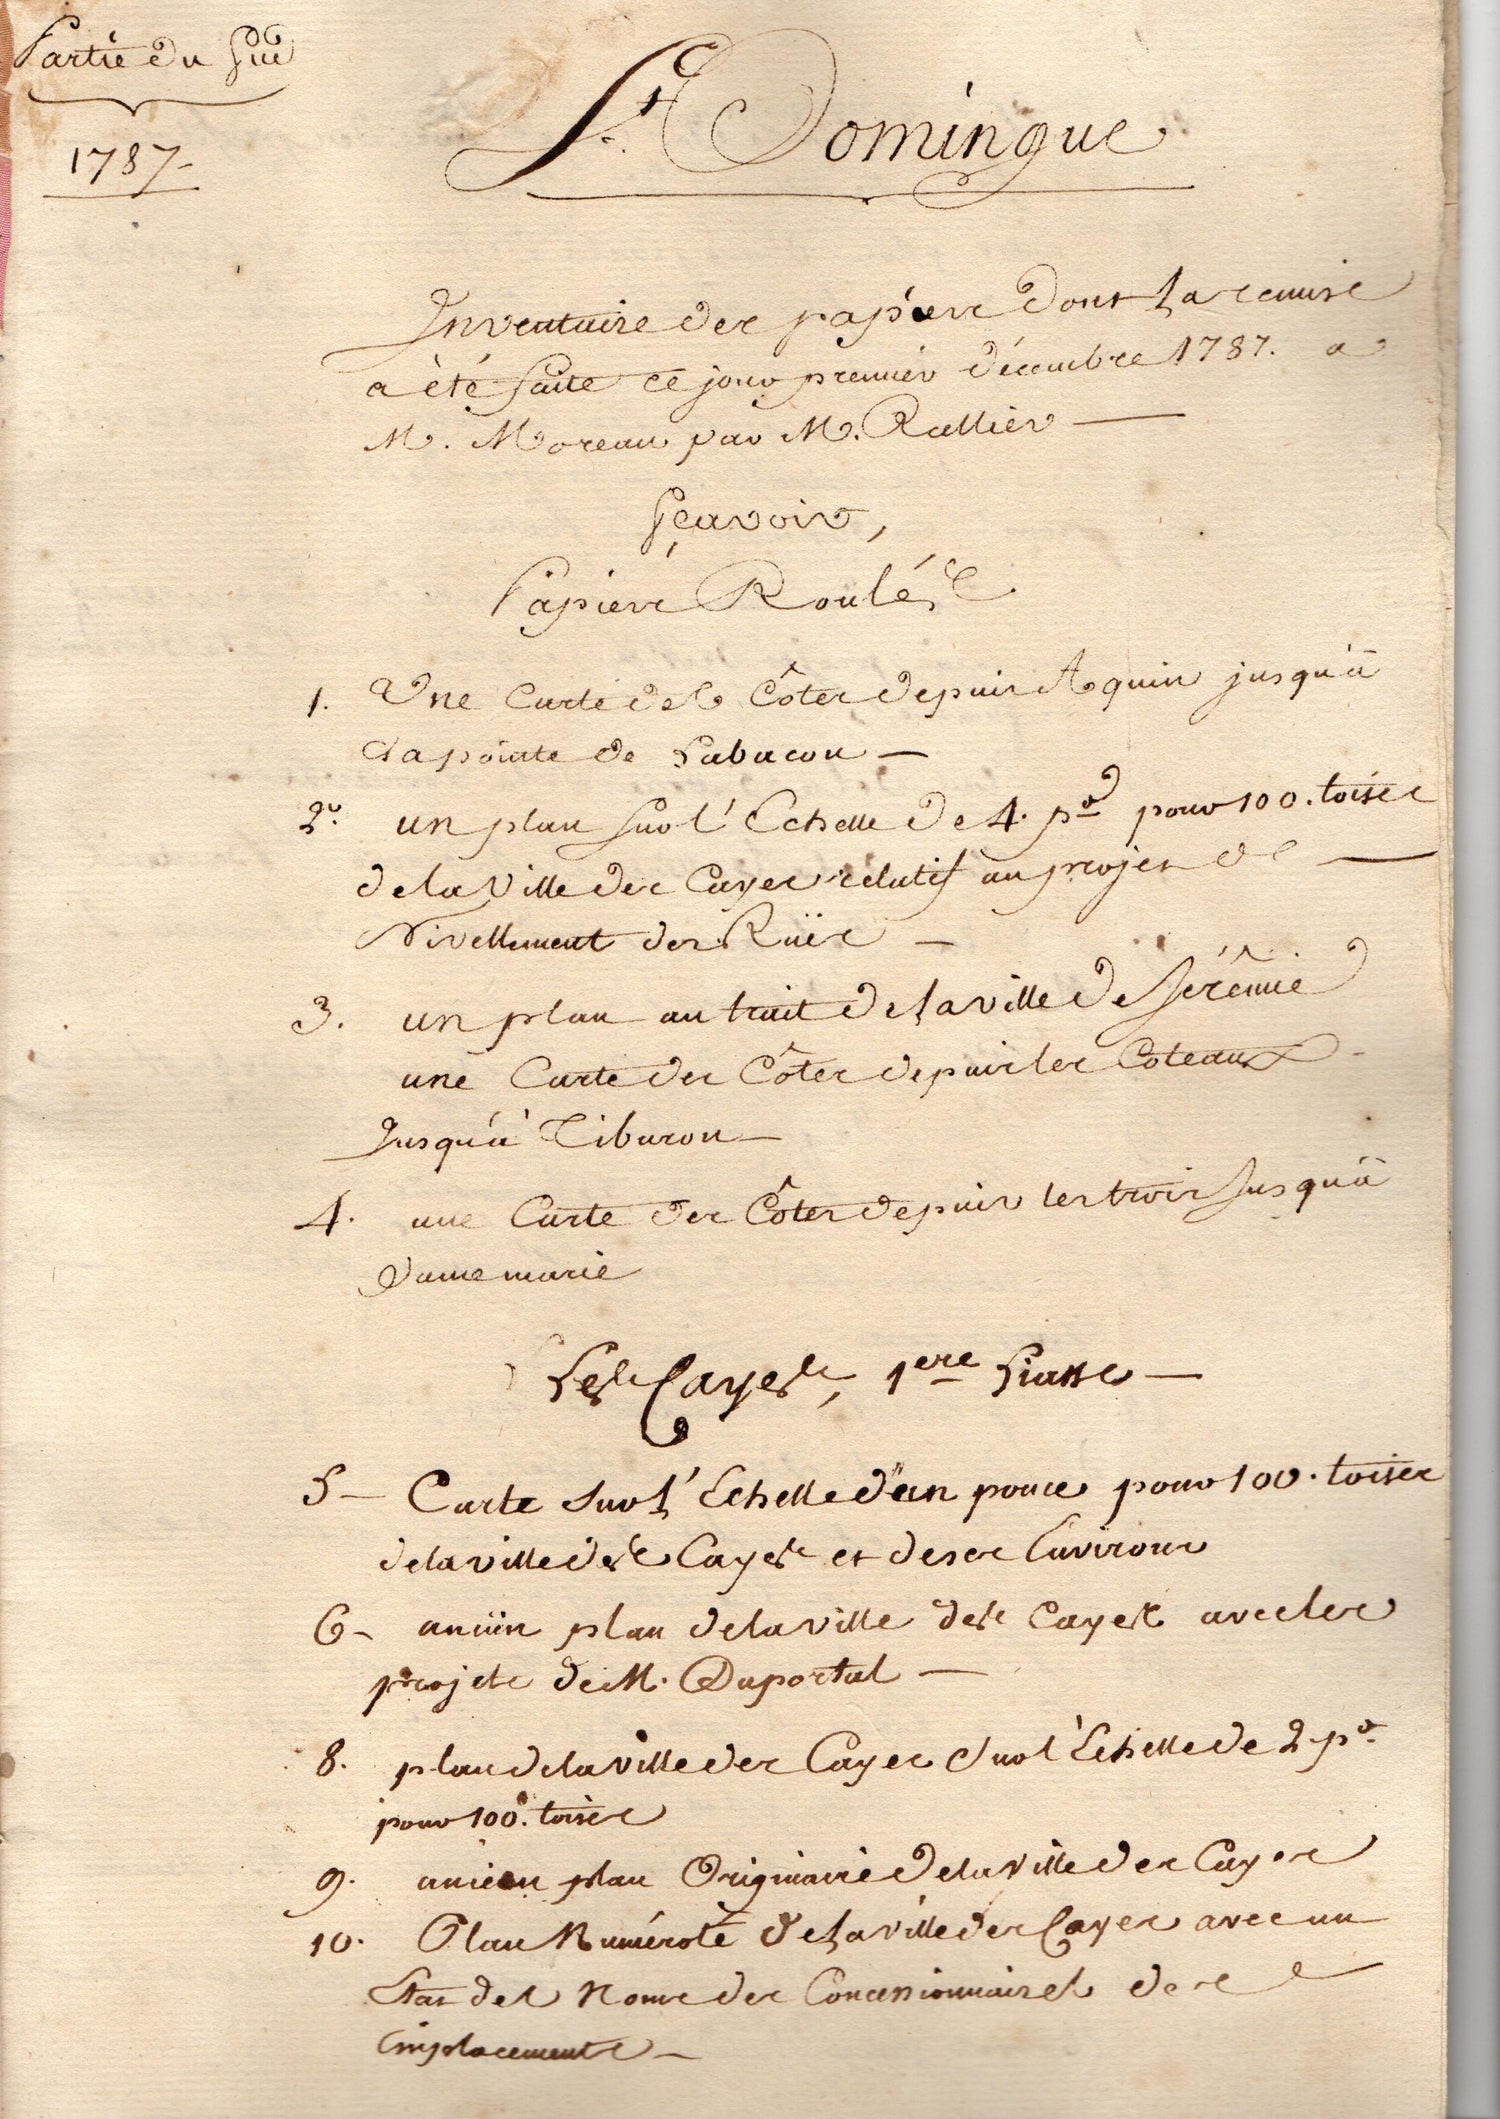 Partie du Sud
1787
St. Domingue
Inventaire des papiers dont la remise
a été faite ce jour premier décembre 1787. a
M. Moreau par M. Rallier
Sçavoir,
Papiers Roulés
1. Une Carte des Côtes depuis Aquin jusqu'à
la pointe de l'abacou
2. un plan sur l'Echelle de 4. po. pour 100. toises
de la Ville des Cayes relatif au projet de
Nivellement des Rües
3. un plan au trait de la ville de Jérémie
une Carte des Côtes depuis les Coteaux
Jusqu'à Tiburon
4. une Carte des Côtes depuis les trois Jusqu'à
Damemarie
Les Cayes, 1ere Liasse
5 Carte sur l'Echelle d'un pouce pour 100. toises
de la ville des Cayes et de ses Environs
6 ancien plan de la ville des Cayes avec les
projets de M. Duportal
8. plan de la ville des Cayes sur l'Echelle de 2 po.
pour 100. toises
9. ancien plan Originaire de la Ville des Cayes
10. Plan Numéroté de la ville des Cayes avec un
Etat des Noms des Concessionnaires des
Emplacements